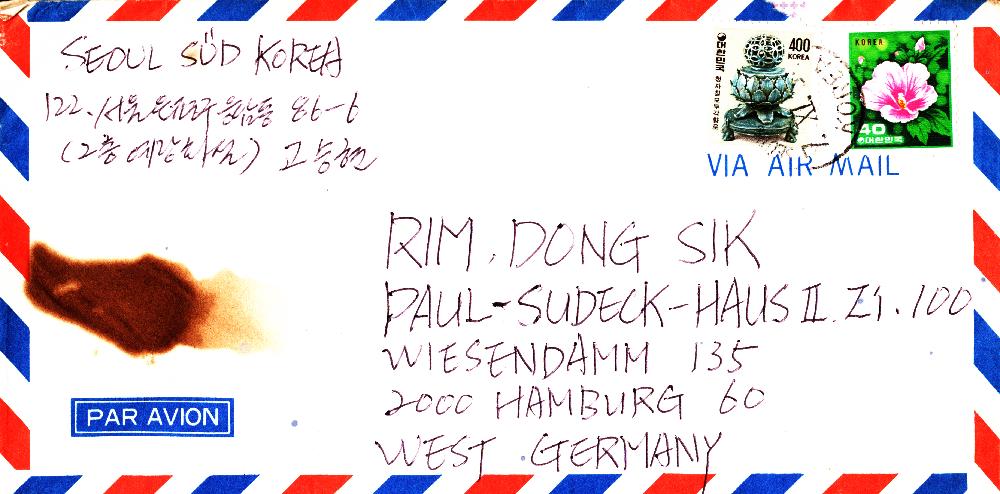 SEOUL SÜD KOREA
122. 서울 은평구 응암동 86-6
(2층 예랑화실) 고승현
대한민국
400
KOREA
KOREA
40
대한민국
VIA AIR MAIL
RIM. DONG SIK
PAUL-SUDECK-HAUS II Zi. 100
WIESENDAMM 135
2000 HAMBURG 60
WEST GERMANY
PAR AVION